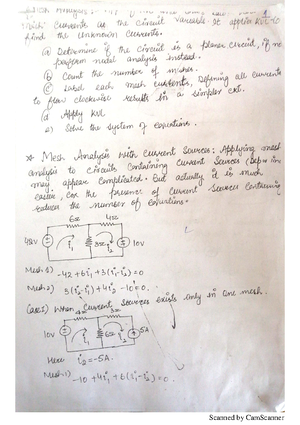 Mesh currents as the circuit variable. It applies KVL to
find the unknown currents.
a) Determine if the circuit is a planar circuit, if no
perform nodal analysis instead.
b) Count the number of meshes.
c) Label each mesh currents, defining all currents
to flow clockwise results in a simpler ckt.
d) Apply KVL
e) Solve the system of equations.
* Mesh Analysis with Current Sources: Applying mesh
analysis to circuits containing current sources
may appear complicated. But actually it is much
easier, the presence of current sources
reduces the number of equations.
6Ω 4Ω
42V i₁ 3Ω i₂ 10V
Mesh 1) -42 + 6i₁ + 3(i₁-i₂) = 0
Mesh 2) 3(i₂-i₁) + 4i₂ - 10 = 0.
Case 1) When current sources exists only in one mesh.
4Ω
10V i₁ 6Ω i₂ 5A
Here i₂ = -5A.
Mesh 1) -10 + 4i₁ + 6(i₁-i₂) = 0.
Scanned by CamScanner